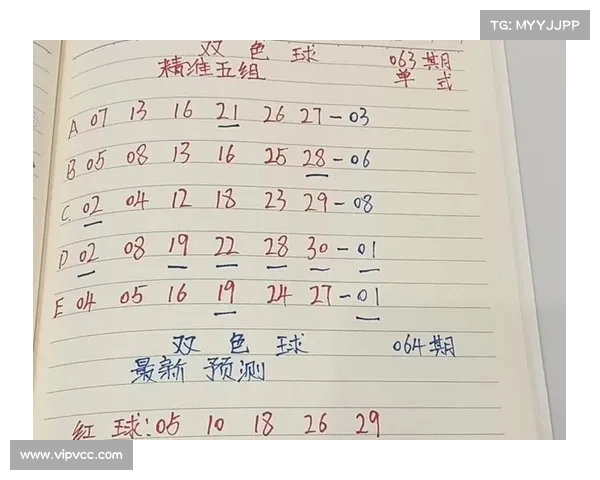 TG: MYYJJPP
双色球 063期
精准五组 单式
A 07 13 16 21 26 27-03
B 05 08 13 16 25 28-06
C. 02 04 12 18 23 29-08
D 02 08 19 22 28 30-01
E 04 05 16 19 24 27-01
双色球 064期
最新预测
红球:05 10 18 26 29
www.vipvcc.com